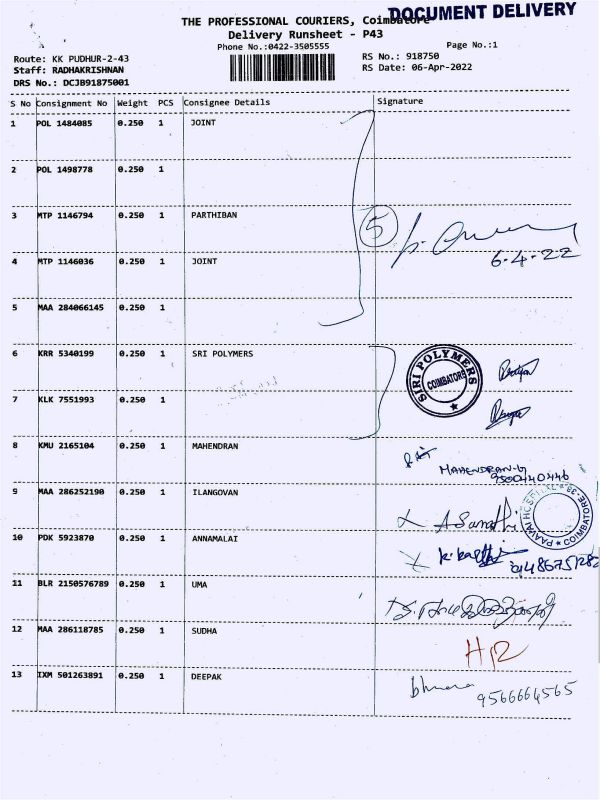 THE PROFESSIONAL COURIERS, Coimbatore DOCUMENT DELIVERY
Delivery Runsheet - P43
Phone No.:0422-3505555
Page No.:1
Route: KK PUDHUR-2-43
RS No.: 918750
Staff: RADHAKRISHNAN
RS Date: 06-Apr-2022
DRS No.: DCJB91875001
S No Consignment No Weight PCS Consignee Details Signature
1 POL 1484085 0.250 1 JOINT
2 POL 1498778 0.250 1
3 MTP 1146794 0.250 1 PARTHIBAN
5
6-4-22
4 MTP 1146036 0.250 1 JOINT
5 MAA 284066145 0.250 1
6 KRR 5340199 0.250 1 SRI POLYMERS
SIRI POLYMERS COIMBATORE
7 KLK 7551993 0.250 1
8 KMU 2165104 0.250 1 MAHENDRAN
MAHENDRAN-G
9500440446
9 MAA 286252190 0.250 1 ILANGOVAN
COIMBATORE-38
10 PDK 5923870 0.250 1 ANNAMALAI
11 BLR 2150576789 0.250 1 UMA
12 MAA 286118785 0.250 1 SUDHA
13 IXM 501263891 0.250 1 DEEPAK
9566664565